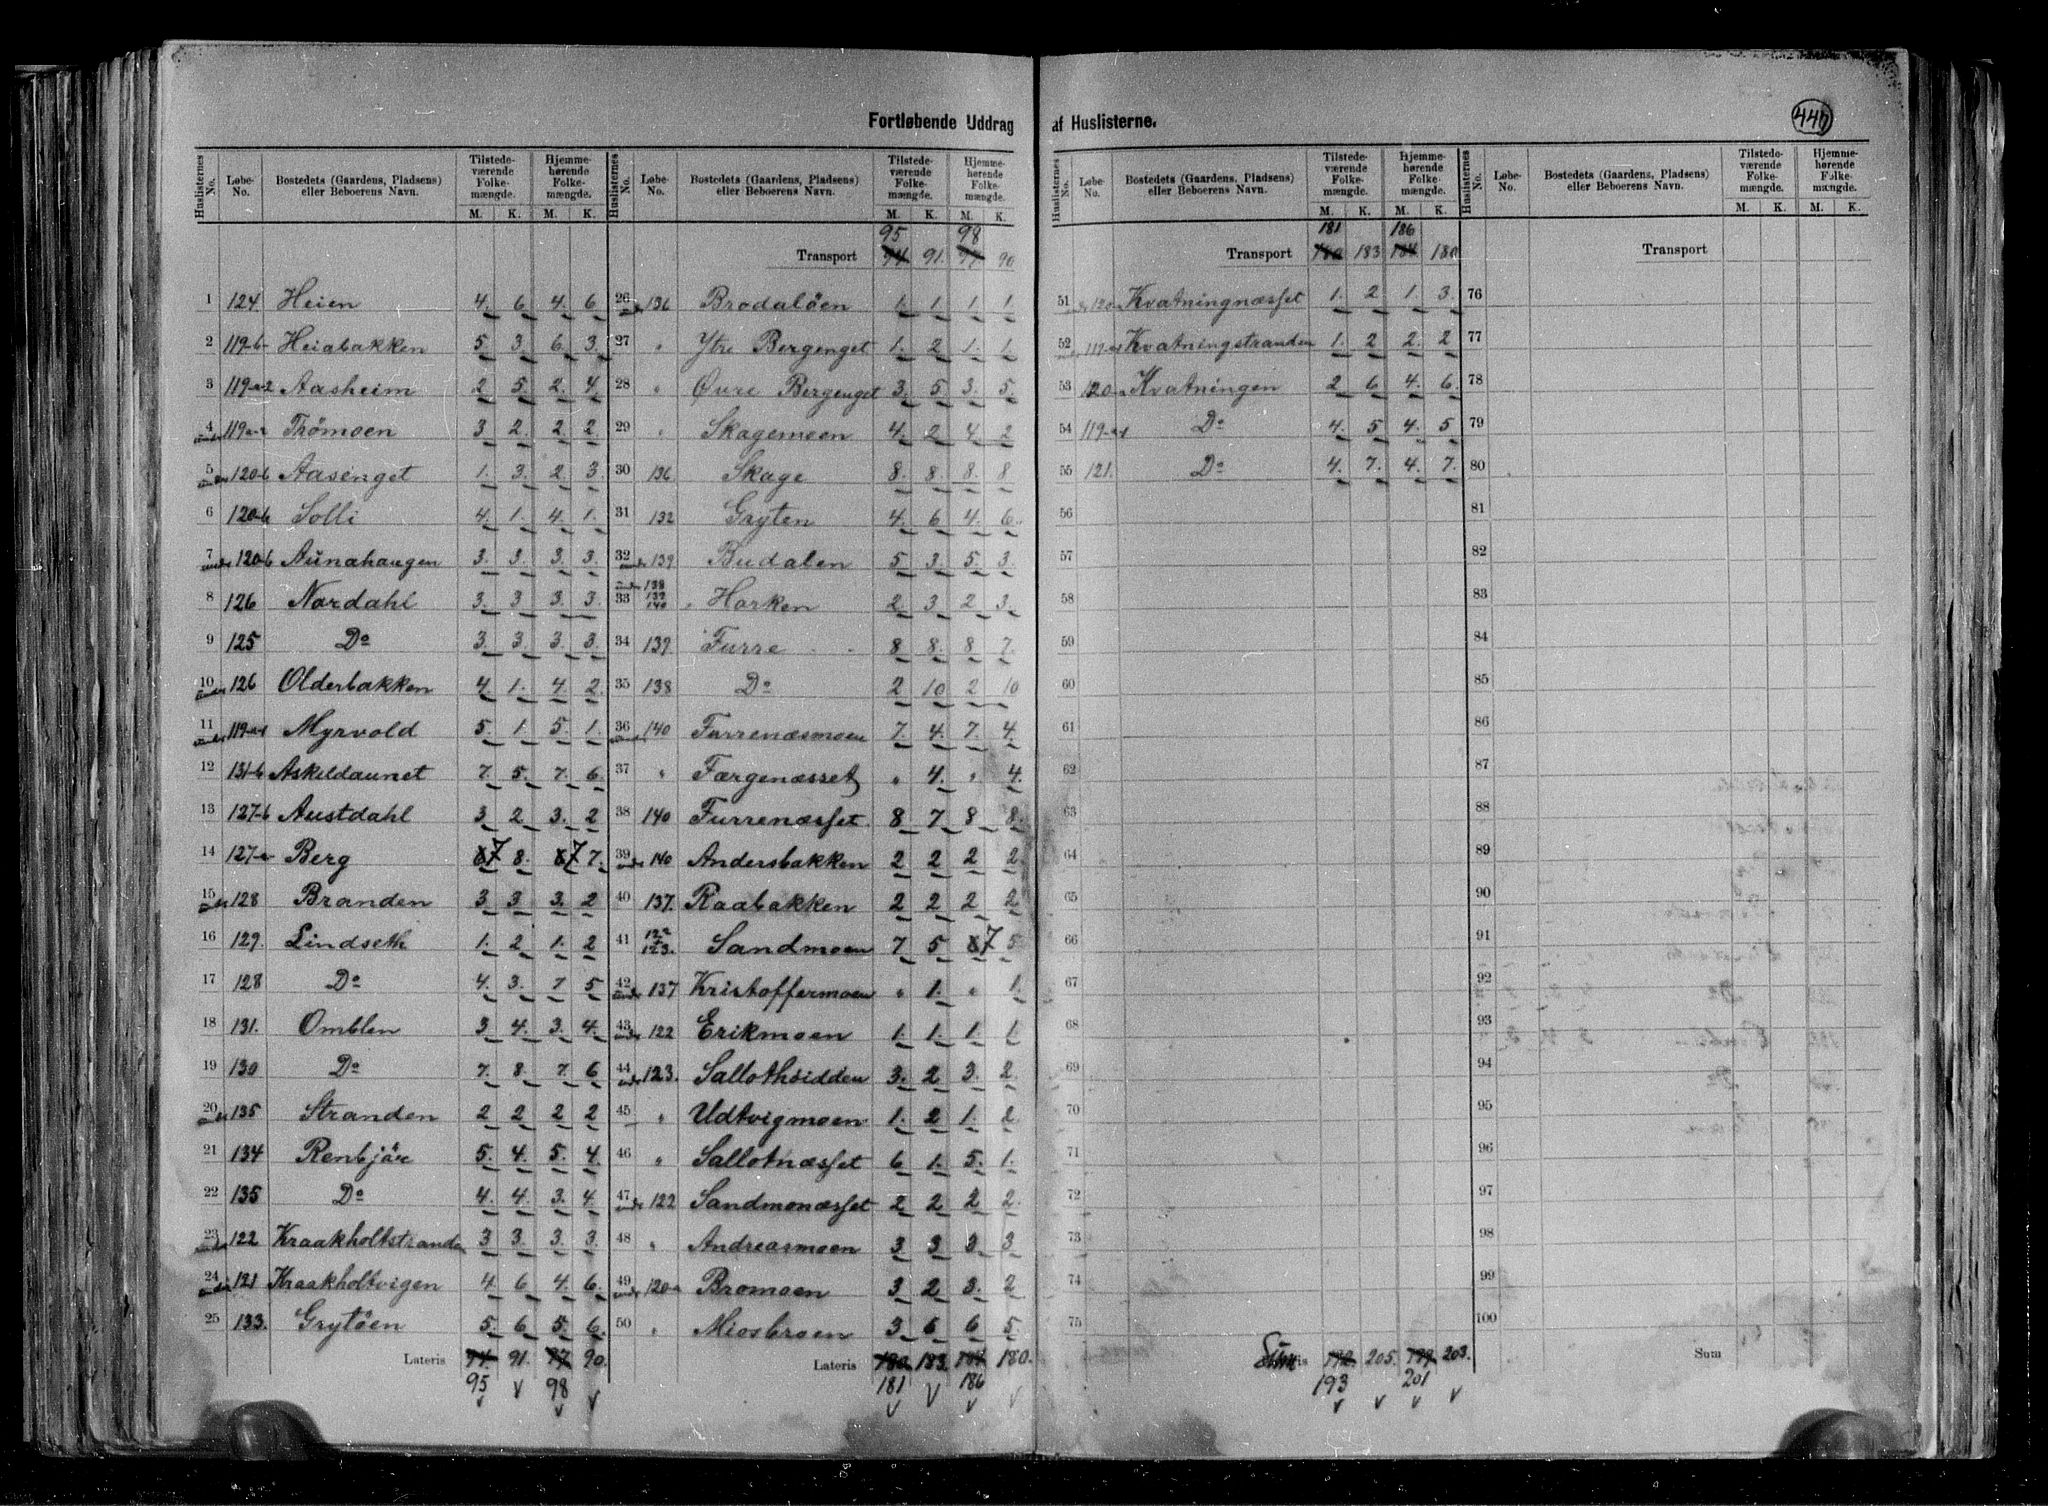 Fortløbende Uddrag af Huslisterne.
447
Huslisternes No. Løbe-No. Bostedets (Gaardens, Pladsens) eller Beboerens Navn. Tilstedeværende Folkemængde. M. K. Hjemmehørende Folkemængde. M. K.
1 124. Heien 4. 6. 4. 6.
2 119-b Heiabakken 5. 3. 6. 3.
3 119-a-2 Aasheim 2. 5. 2. 4.
4 under 119-a-2 Trömoen 3. 2. 2. 2.
5 under 120-b Aasenget 1. 3. 2. 3.
6 120-b Solli 4. 1. 4. 1.
7 under 120-b Aunahaugen 3. 3. 3. 3.
8 126 Nordahl 3. 3 3. 3.
9 125 Do 3. 3 3. 3.
10 under 126 Olderbakken 4. 1. 4. 2.
11 under 119-a-1 Myrvold 5. 1. 5. 1.
12 131-b Askeldaunet 7. 5. 7. 6.
13 127-b Austdahl 3. 2. 3. 2
14 127-a Berg 7 8. 7 7.
15 under 128 Branden 3. 3 3. 2
16 129. Lindseth 1. 2 1. 2
17 128 Do 4. 3. 7. 5
18 131. Omblen 3. 4. 3. 4.
19 130 Do 7. 8. 7. 6
20 under 135 Stranden 2 2 2 2
21 134 Renbjör 5. 4. 5. 4
22 135 Do 4. 4. 3. 4.
23 under 122 Kraakholtstranden 3 3. 3. 3.
24 under 121 Kraakholtvigen 4. 6 4. 6.
25 133. Grytöen 5. 6 5. 6.
Lateris 94. 91. 97 90.
95 98
Huslisternes No. Løbe-No. Bostedets (Gaardens, Pladsens) eller Beboerens Navn. Tilstedeværende Folkemængde. M. K. Hjemmehørende Folkemængde. M. K.
95 98
Transport 94 91. 97 90
26 under 136 Brodalöen 1. 1. 1. 1.
27 " Ytre Bergenget 1. 2 1. 1.
28 " Övre Bergenget 3. 5. 3. 5.
29 " Skagemoen 4. 2 4. 2
30 136 Skage 8. 8. 8. 8
31 132 Gryten 4. 6 4. 6.
32 under 139 Budalen 5 3. 5. 3.
33 under 138 139 140 Horken 2. 3 2 3.
34 139 Furre 8 8. 8 7.
35 138 Do 2 10 2 10
36 under 140 Furrenæsmoen 7. 4. 7. 4.
37 " Færgenæsset " 4. " 4.
38 140 Furrenæsset 8 7 8 8.
39 under 140 Andersbakken 2 2 2 2.
40 137. Raabakken 2 2 2 2
41 122 123. Sandmoen 7. 5 7 5
42 under 137 Kristoffermoen " 1. " 1.
43 under 122 Erikmoen 1. 1. 1. 1.
44 under 123. Sallothsidden 3. 2 3. 2.
45 " Udtvigmoen 1. 2 1. 2
46 " Sallotnæsset 6 1. 5. 1.
47 under 122 Sandmonæsset 2 2 2 2.
48 " Andreasmoen 3 3 3 3
49 under 120-a Bromoen 3 2 3. 2
50 " Miosbroen 3 6 6 5
Lateris 180. 183. 184 180.
181 186
Huslisternes No. Løbe-No. Bostedets (Gaardens, Pladsens) eller Beboerens Navn. Tilstedeværende Folkemængde. M. K. Hjemmehørende Folkemængde. M. K.
181 186
Transport 180 183 184 180
51 under 120-a Kvatningnæsset 1. 2 1. 3.
52 under 119-a-1 Kvatningstranden 1. 2 2. 2
53 120-a Kvatningen 2 6 4. 6.
54 119-a-1 Do 4. 5 4. 5
55 121. Do 4. 7. 4. 7.
56
57
58
59
60
61
62
63
64
65
66
67
68
69
70
71
72
73
74
75
Sum 192 205. 199 203.
193 201
Huslisternes No. Løbe-No. Bostedets (Gaardens, Pladsens) eller Beboerens Navn. Tilstedeværende Folkemængde. M. K. Hjemmehørende Folkemængde. M. K.
Transport
76
77
78
79
80
81
82
83
84
85
86
87
88
89
90
91
92
93
94
95
96
97
98
99
100
Sum